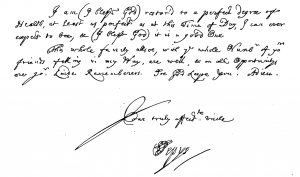 I am (I bless God) restored to a perfect degree of
Health, at least as perfect as at this time of Day, I can ever
expect to bee, & (I bless God) it is a good One
This whole family alsoe, with yͤ whole Numbʳ of yoʳ
friends falling in my Way, are well, & on all Opportunitys
over yoʳ Kinde Remembrances. Soe God keepe you. Adieu.
Your truly affectᵗᵉ uncle
SPepys